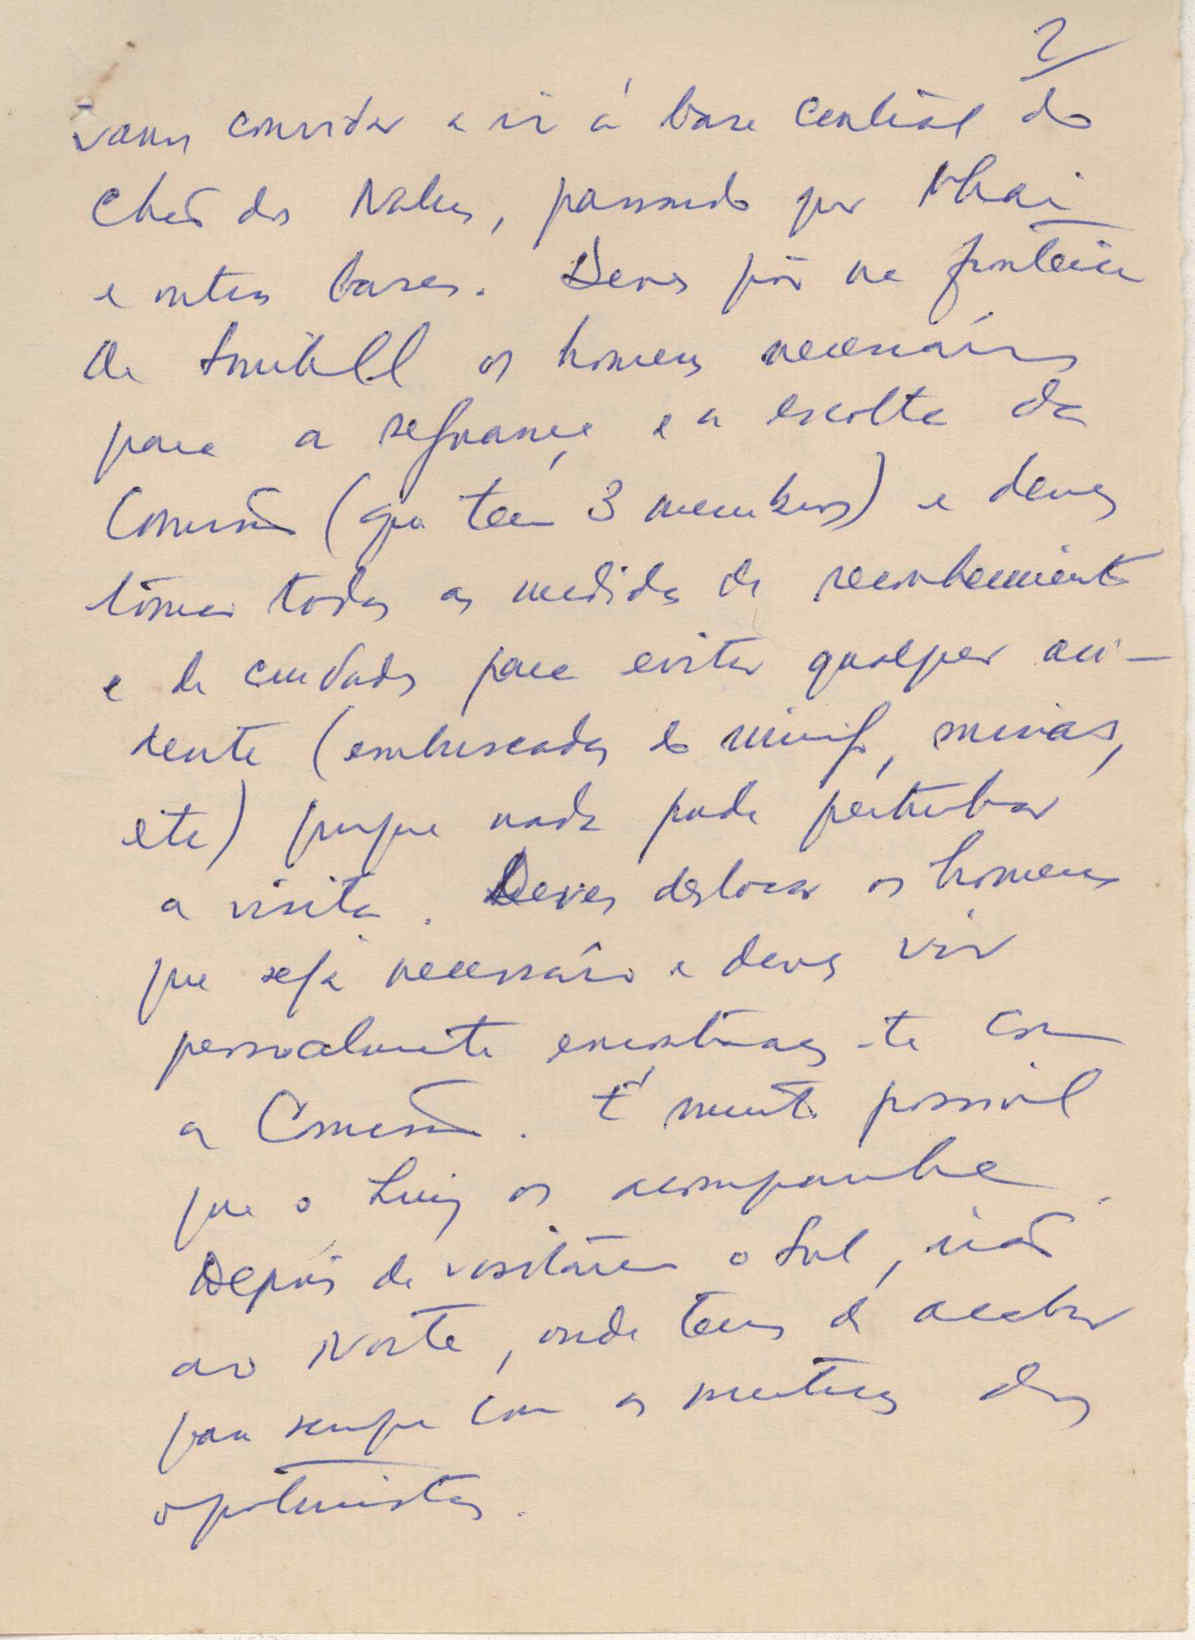 2
vamos convidar a ir á base central do
Chão dos Nalus, passando por Nhai
e outras bases. Deves pôr na fronteira
de Simbeli os homens necessários
para a segurança e a escolta da
Comissão (que tem 3 membros) e deves
tomar todas as medidas de reconhecimento
e de cuidados para evitar qualquer aci-
dente (emboscadas do inimigo, minas,
etc) porque nada pode perturbar
a visita. Deves deslocar os homens
que seja necessário e deves vir
pessoalmente encontrar-te com
a Comissão. É muito possível
que o Luiz os acompanhe.
Depois de visitarem o Sul, irão
ao Norte, onde temos de acabar
para sempre com as mentiras dos
oportunistas.